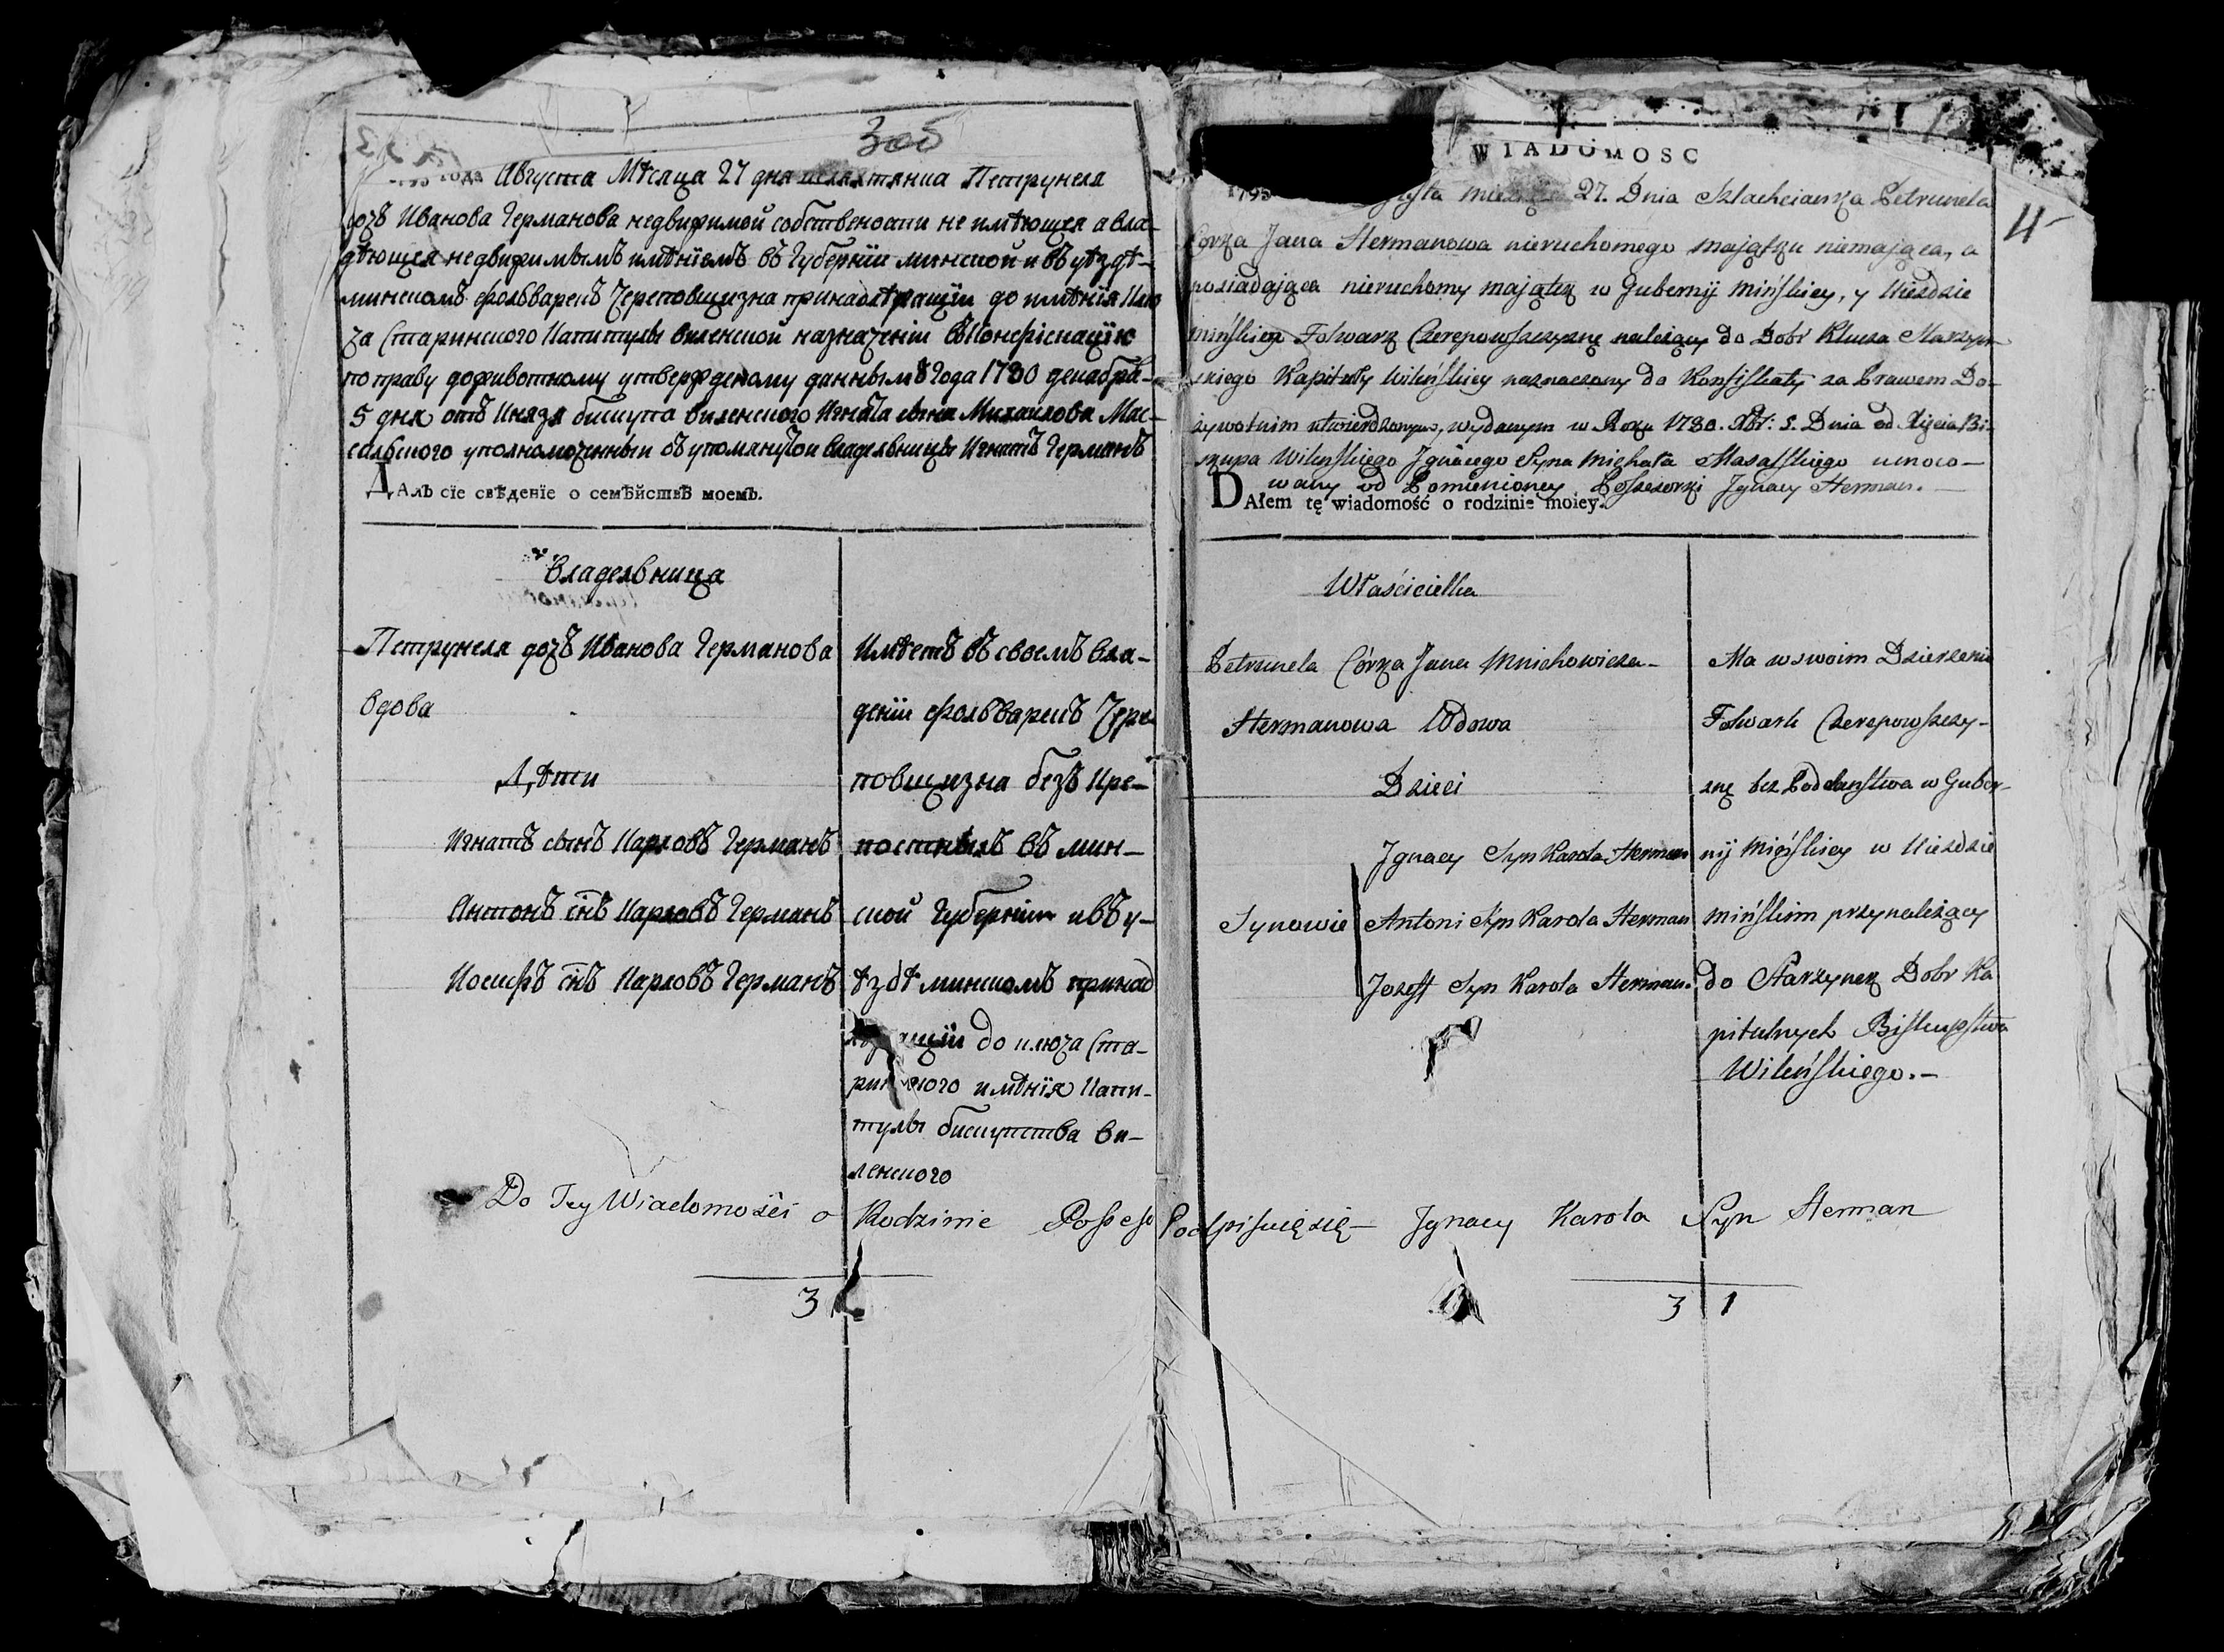 305
1795 года Августа Мѣсяца 27 дня шляхтянка Петрунеля
дочь Иванова Германова недвижимой собственности не имѣющея а вла-
дѣющея недвижимымъ имѣнїемъ въ Губернїи минской и въ уѣздѣ-
минскомъ фольварекъ Череповщизна принадлѣжащїи до имѣнїя Клю
ча Старинского Капитулы виленской назначенїи въ Конфискацїю
по праву доживотному утвержденому даннымъ года 1780 декабря-
5 дня отъ Князя бискупа виленского Игната сына Михаилова Мас-
сальского уполномоченный отъ упомянутой владельницы Игнатъ Германъ
ДАлъ сїе свѣденїе о семѣйствѣ моемъ.
Владельница
Петрунеля дочь Иванова Германова
вдова
Дѣти
Игнатъ сынъ Карловъ Германъ
Антонъ снъ Карловъ Германъ
Иосифъ снъ Карловъ Германъ
Имѣетъ въ своемъ вла-
денїи фольварекъ Чере-
повщизна безъ Кре-
постныхъ въ мин-
ской Губернїи и въ у-
ѣздѣ минскомъ принад
щїи до ключа Ста-
ринского имѣнїя Капи-
тулы бискупства ви-
ленского
WIADOMOSC
1795 miesiąca 27. Dnia Szlachcianka Petrunela
Corka Jana Hermanowa nieruchomego majątku niemająca, a
posiadająca nieruchomy majątek w Gubernij Mińskiey, y Uieździe
mińskiem Folwark Czerepowszczyznę należący do Dobr Klucza Starzyn-
skiego Kapituły Wileńskiey naznaczony do Konfiskaty za Prawem Do-
żywotnim utwierdzonym, wydanym w Roku 1780. Xbr: 5. Dnia od Xięcia Bi-
skupa Wileńskiego Jgnacego Syna Michała Masalskiego umoco-
wany od Pomienioney Possesorki Jgnacy Herman.
DAłem tę wiadomość o rodzinie moiey.
4
Właścicielka
Petrunela Córka Jana Mnichowicza-
Hermanowa Wdowa
Dzieci
Jgnacy Syn Karola Herman
Synowie Antoni Syn Karola Herman
Jozeff Syn Karola Herman.
Ma w swoim Dzierzeniu
Folwark Czerepowszczy-
znę bez Poddanstwa w Guber-
nij Mińskiey w Uieździe
mińskim przynależący
do Starzynek Dobr Ka
pitulnych Biskupstwa
Wileńskiego.-
Do Tey Wiadomośći o Rodzinie Possesso Podpisuię się- Jgnacy Karola Syn Herman
3
3 1